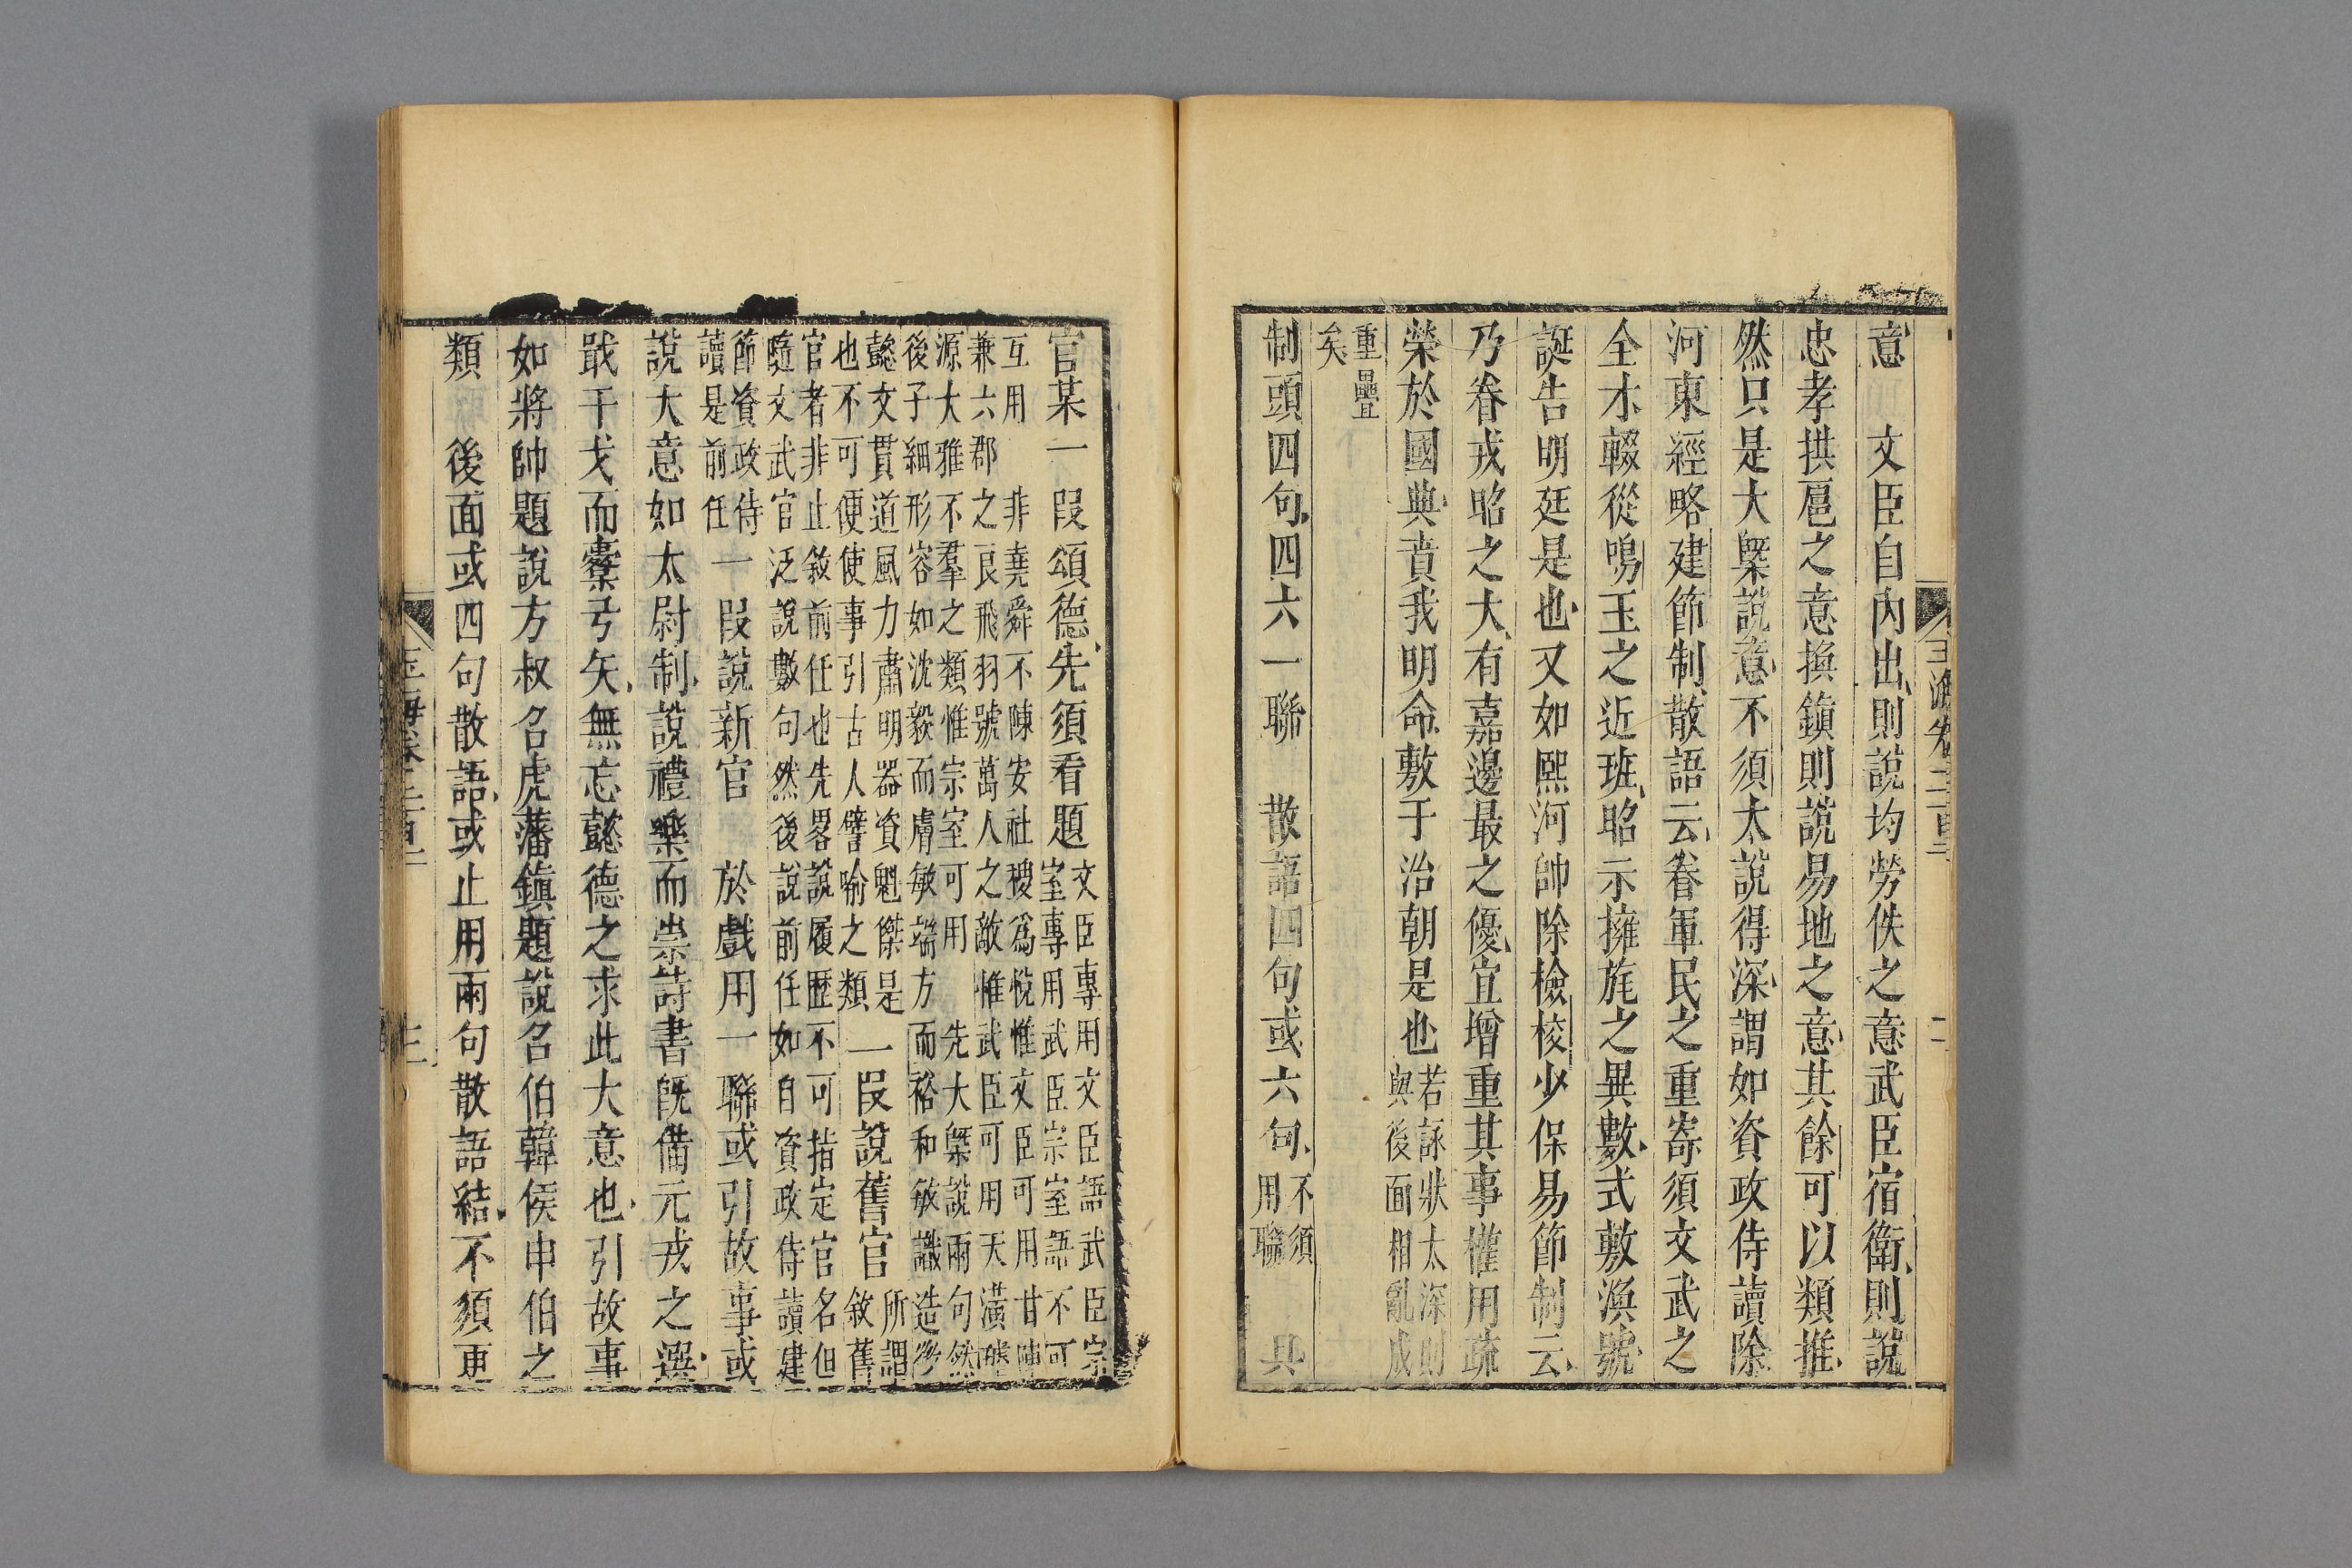 意　文臣自內出則說均勞佚之意武臣宿衛則說
忠孝拱扈之意換鎮則說易地之意其餘可以類推
然只是大槩說意不須太說得深謂如資政侍讀除
河東經略建節制散語云眷軍民之重寄須文武之
全才輟從鳴玉之近班昭示擁旄之異數式敷渙號
誕告明廷是也又如熙河帥除檢校少保易節制云
乃眷戎昭之大有嘉邊最之優宜增重其事權用疏
榮於國典賁我明命敷于治朝是也若詠狀太深則
與後面相亂成
重疊
矣
制頭四句四六一聯　散語四句或六句不須
用聯　具
官某一段頌德先須看題文臣專用文臣語武臣宗
室專用武臣宗室語不可
互用　非堯舜不陳安社稷爲悅惟文臣可用甘陳
兼六郡之良飛羽號萬人之敵惟武臣可用天潢
源大雅不羣之類惟宗室可用　先大槩說兩句然
後子細形容如沈毅而膚敏端方而裕和敏識造
懿文貫道風力肅明器資魁傑是
也不可便使事引古人譬喻之類一段說舊官所謂
敘舊
官者非止敘前任也先畧說履歷不可指定官名但
隨文武官泛說數句然後說前任如自資政侍讀建
節資政侍
讀是前任一段說新官　於戲用一聯或引故事或
說大意如太尉制說禮樂而崇詩書旣備元戎之選
戢干戈而櫜弓矢無忘懿德之求此大意也引故事
如將帥題說方叔召虎藩鎮題說召伯韓侯申伯之
類　後面或四句散語或止用兩句散語結不須更
玉海卷二百二　二
玉海卷二百二　三